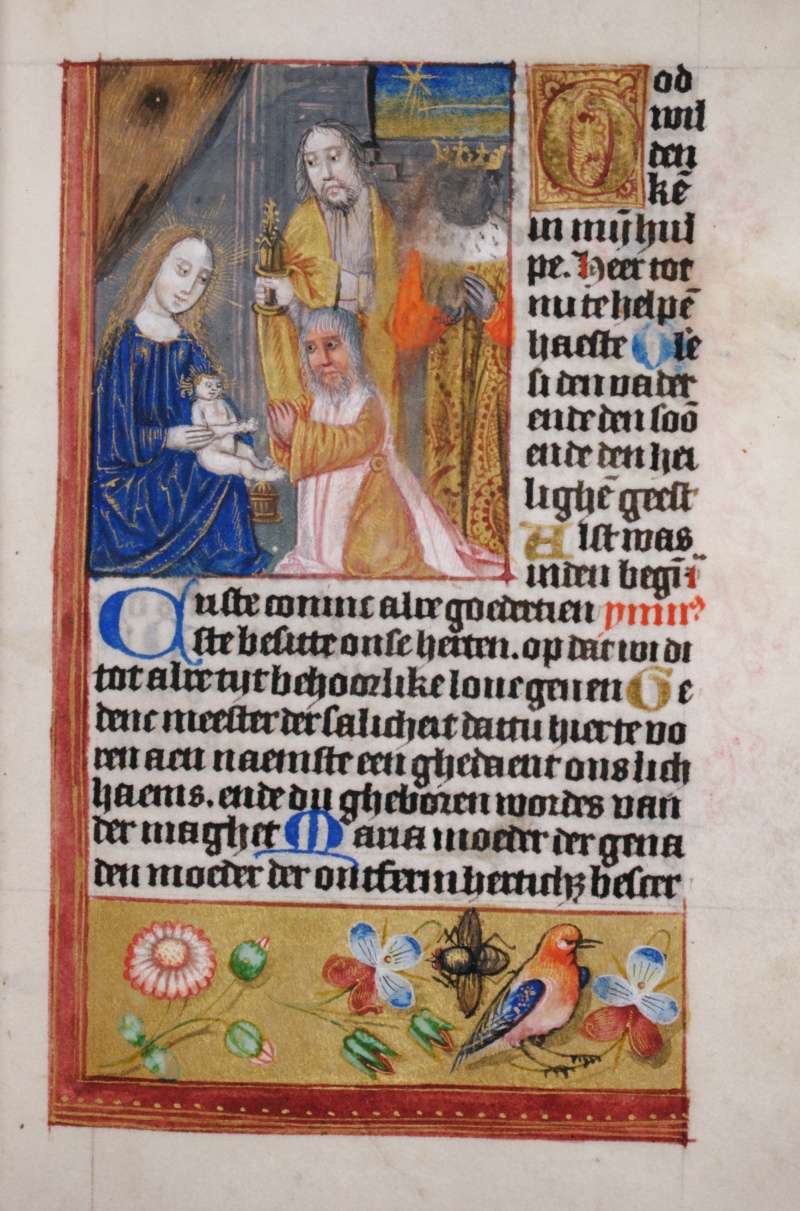 God
wil
den
kē
in mijn hul
pe. Heer tot
nu te helpē
haeste Gle
si den vader
ende den soō
ende den hei
lighē geest
Alst was
inden begī
Custe coninc alre goedertien ymnꝰ
ste besitte onse herten. op dat wi di
tot alre tijt behoorlike loue geuen Ge
denc meester der salicheit dattu hier te vo
ren aen naemste een ghedaent ons lich
haems. ende du gheboren wordes van
der maghet Maria moeder der gena
den moeder der ontfermherticheit bescer